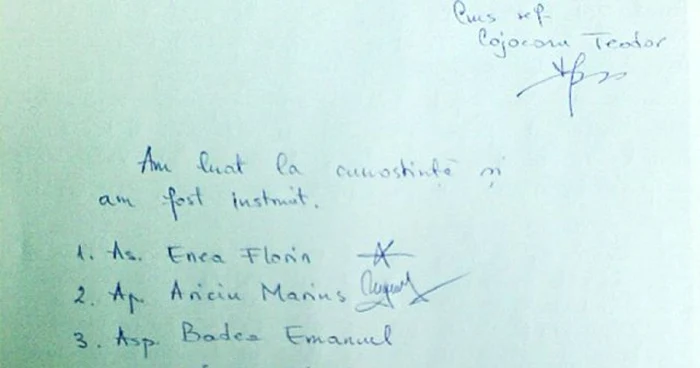 Cms șef
Cojocaru Teodor
Am luat la cunostință și
am fost instruit.
1. As. Enea Florin
2. Ap. Ariciu Marius
3. Asp. Badea Emanuel